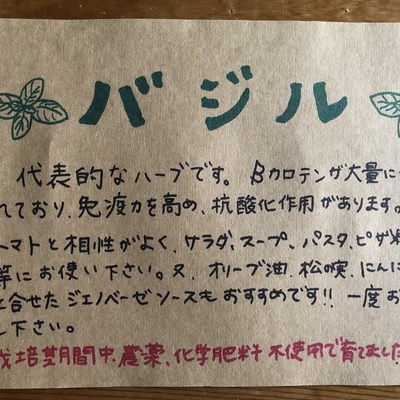 バジル
代表的なハーブです。βカロテンが大量に
れており、免疫力を高め、抗酸化作用があります。
トマトと相性がよく、サラダ、スープ、パスタ、ピザ料
等にお使い下さい。又、オリーブ油、松の実、にんに
合せたジェノベーゼソースもおすすめです!!一度お
し下さい。
栽培期間中、農薬、化学肥料不使用で育てました